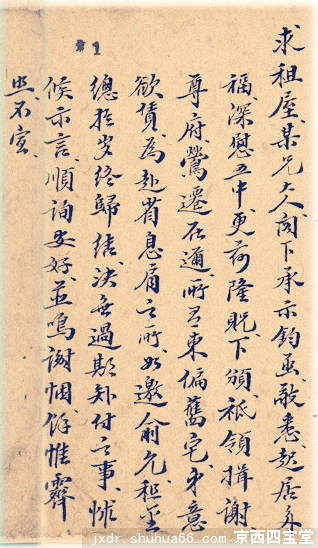 求租屋某兄大人閣下承示鈞函敬悉起居多
福深慰五中更荷隆貺下頒祗領揖謝
尊府鶯遷在邇所有東偏舊宅弟意
欲賃為赴省息肩之所如邀俞允租金
總於岁終歸結決無過期欠付之事悚
候示言順詢安好並鳴謝悃餘惟霽
照不宣
1
jxdr.shuhua66.com 京西四宝堂